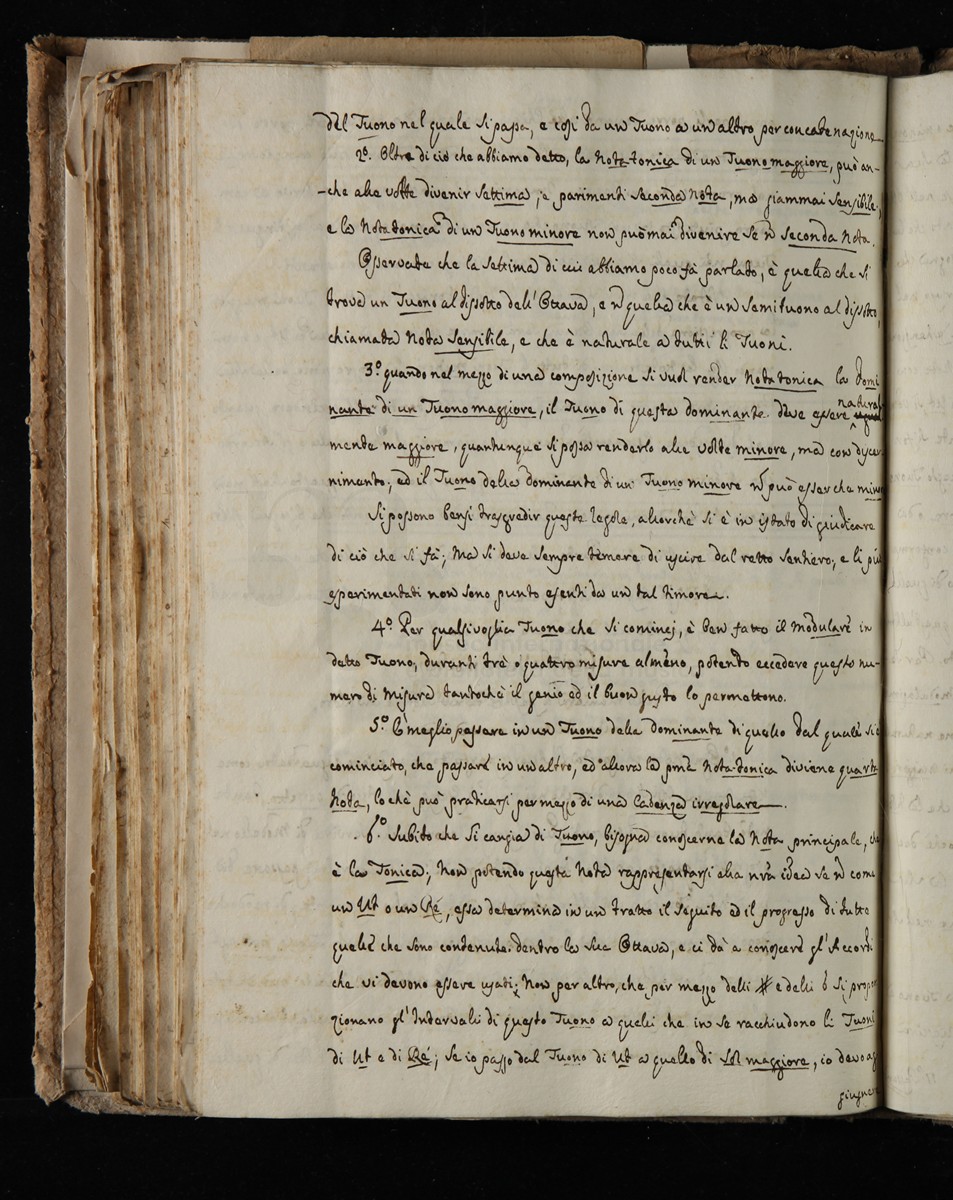 del Tuono nel quale si passa, e così da un Tuono a un altro per concatenazione
2°. Oltre di ciò che abbiamo detto, la Nota tonica di un Tuono maggiore, può an-
-che alle volte divenir settima, e parimenti seconda Nota, ma giammai sensibile;
e la Nota tonica di un Tuono minore non può mai divenire se ñ seconda Nota.
Osservate che la settima di cui abbiamo poco fà parlato, è quella che si
trova un Tuono al dissotto dell'Ottava, e ñ quella che è un semituono al dissotto,
chiamata Nota sensibile, e che è naturale a tutti li Tuoni.
3°. quando nel mezzo di una composizione si vuol render Nota tonica la domi
nante di un Tuono maggiore, il Tuono di questa dominante deve essere natural
mente maggiore, quantunque si possa renderlo alle volte minore, ma con discer
nimento; ed il Tuono della dominante di un Tuono minore ñ può esser che mino
Si possono bensì trasgredir queste regole, allorchè si è in istato di giudicare
di ciò che si fà; ma si deve sempre temere di uscire dal retto sentiero, e li più
esperimentati non sono punto esenti da un tal timore.
4°. Per qualsivoglia Tuono che si cominci, è ben fatto il modulare in
detto Tuono, duranti trè o quattro misure almeno, potendo eccedere questo nu-
mero di misure tantochè il genio ed il buon gusto lo permettono.
5°. È meglio passare in un Tuono della dominante di quello dal quale si è
cominciato, che passare in un altro, ed allora la pma Nota tonica diviene quarta
Nota, lo chè può praticarsi per mezzo di una Cadenza irregolare.
6°. Subito che si cangia di Tuono, bisogna conoscerne la Nota principale, che
è la Tonica; Non potendo questa Nota rappresentarsi alla nra idea se ñ come
un Ut o un Re, essa determina in un tratto il seguito ed il progresso di tutte
quelle che sono contenute dentro la sua Ottava, e ci dà a conoscere gl'Accordi
che vi devono essere usati; Non per altro, che per mezzo delli # e delli b si propor
zionano gl'Intervalli di questo Tuono a quelli che in se racchiudono li Tuoni
di Ut e di Re; Se io passo dal Tuono di Ut a quello di Sol maggiore, io devo ag
giugnere